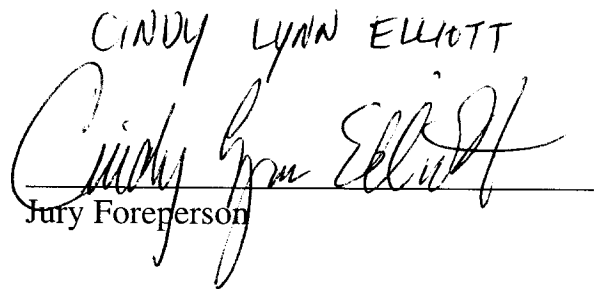 CINDY LYNN ELLIOTT
Cindy Lynn Elliott
Jury Foreperson